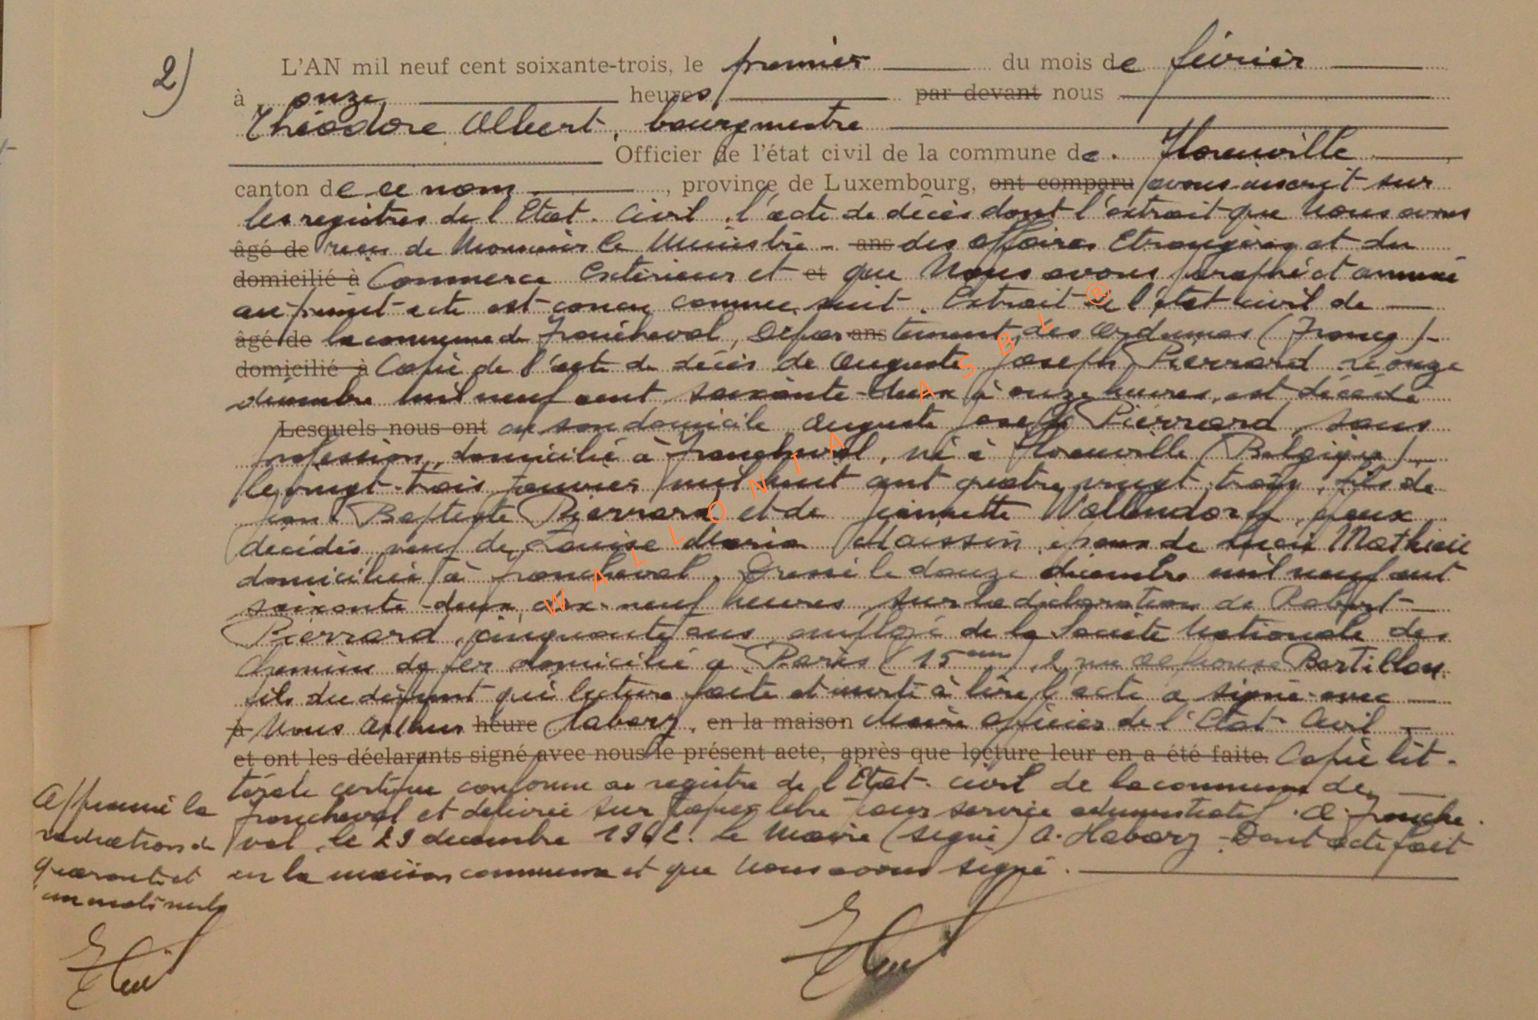 2)
L'AN mil neuf cent soixante-trois, le premier du mois de février
à onze heures par devant nous
Théodore Albert, bourgmestre
Officier de l'état civil de la commune de Florenville
canton de ce nom, province de Luxembourg, ont comparu avons inscrit sur
les registres de l'Etat-Civil, l'acte de décès dont l'extrait que Nous avons
âgé de reçu de Monsieur le Ministre ans des Affaires Etrangères et du
domicilié à Commerce Extérieur et et que Nous avons paraphé et annexé
au présent acte est conçu comme suit. Extrait de l'état civil de
âgé de la commune de Francheval, Depar ans tement des Ardennes (France)
domicilié à Copie de l'acte de décès de Auguste Joseph Pierrard. Le onze
décembre mil neuf cent soixante-deux à onze heures, est décédé
Lesquels nous ont en son domicile Auguste Joseph Pierrard, sans
profession, domicilié à Francheval, né à Florenville (Belgique)
le vingt-trois janvier mil huit cent quatre vingt trois, fils de
Jean Baptiste Pierrard et de Jeannette Wallendorf, époux
décédés, veuf de Louise Maria Maissin, époux de Mathieu
domiciliée à Francheval. Dressé le douze décembre mil neuf cent
soixante-deux dix-neuf heures sur la déclaration de Robert
Pierrard, cinquante ans, employé de la Société Nationale des
Chemins de fer domicilié à Paris (15ème), 2 rue Alphonse Bertillon
fils du défunt qui lecture faite et invité à lire l'acte a signé avec
à Nous Arthur heure Habary, en la maison Maire officier de l'Etat-Civil
et ont les déclarants signé avec nous le présent acte, après que lecture leur en a été faite. Copie lit-
térale certifiée conforme au registre de l'Etat-civil de la commune de
Francheval et délivrée sur papier libre pour service administratif. A Franche-
val, le 29 décembre 1962. Le Maire (signé) A. Habary. Dont acte fait
en la maison communale et que Nous avons signé.
Approuvé la
radiation de
quarante et
un mots nuls
WALLONIA ASBL ©